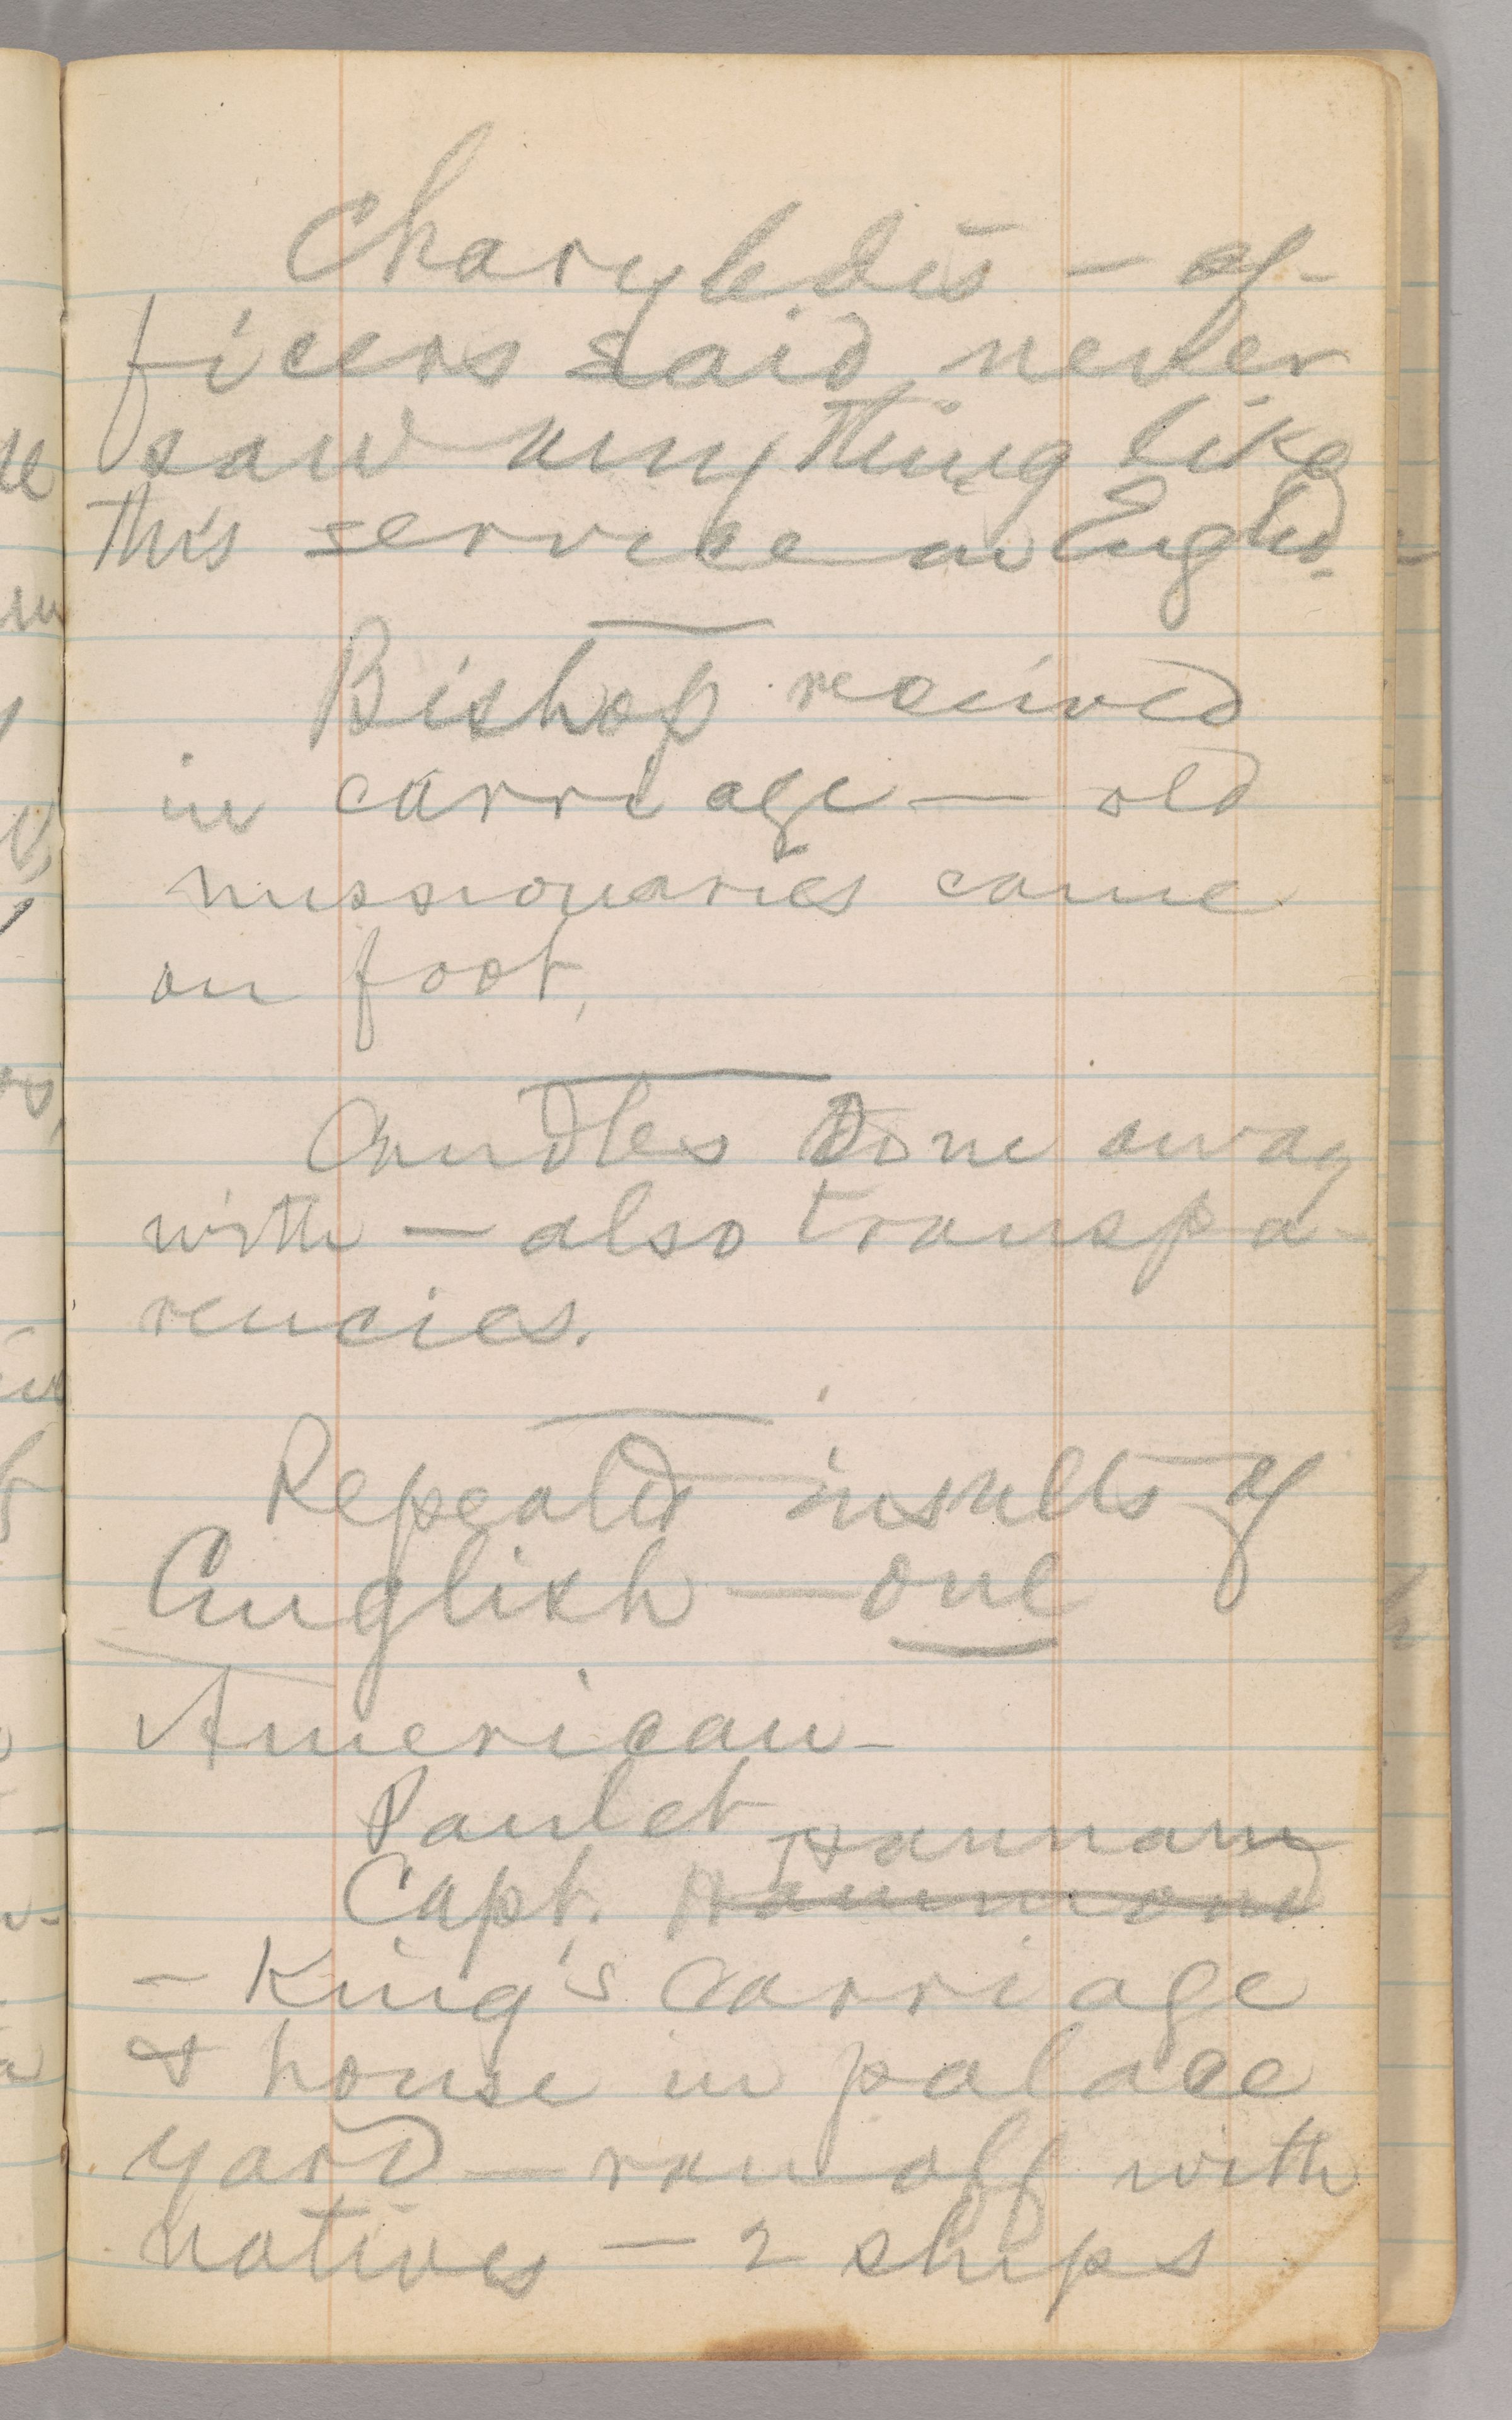 Charybdis — of-
ficers said never
saw anything like
this service in Engld.
Bishop received
in carriage — old
missionaries came
on foot,
Candles done away
with — also transpa-
rencies.
Repeated insults of
English — one
American —
Paulet
Hannam
Capt. Hammond
— King's carriage
& house in palace
yard — ran off with
natives — 2 ships